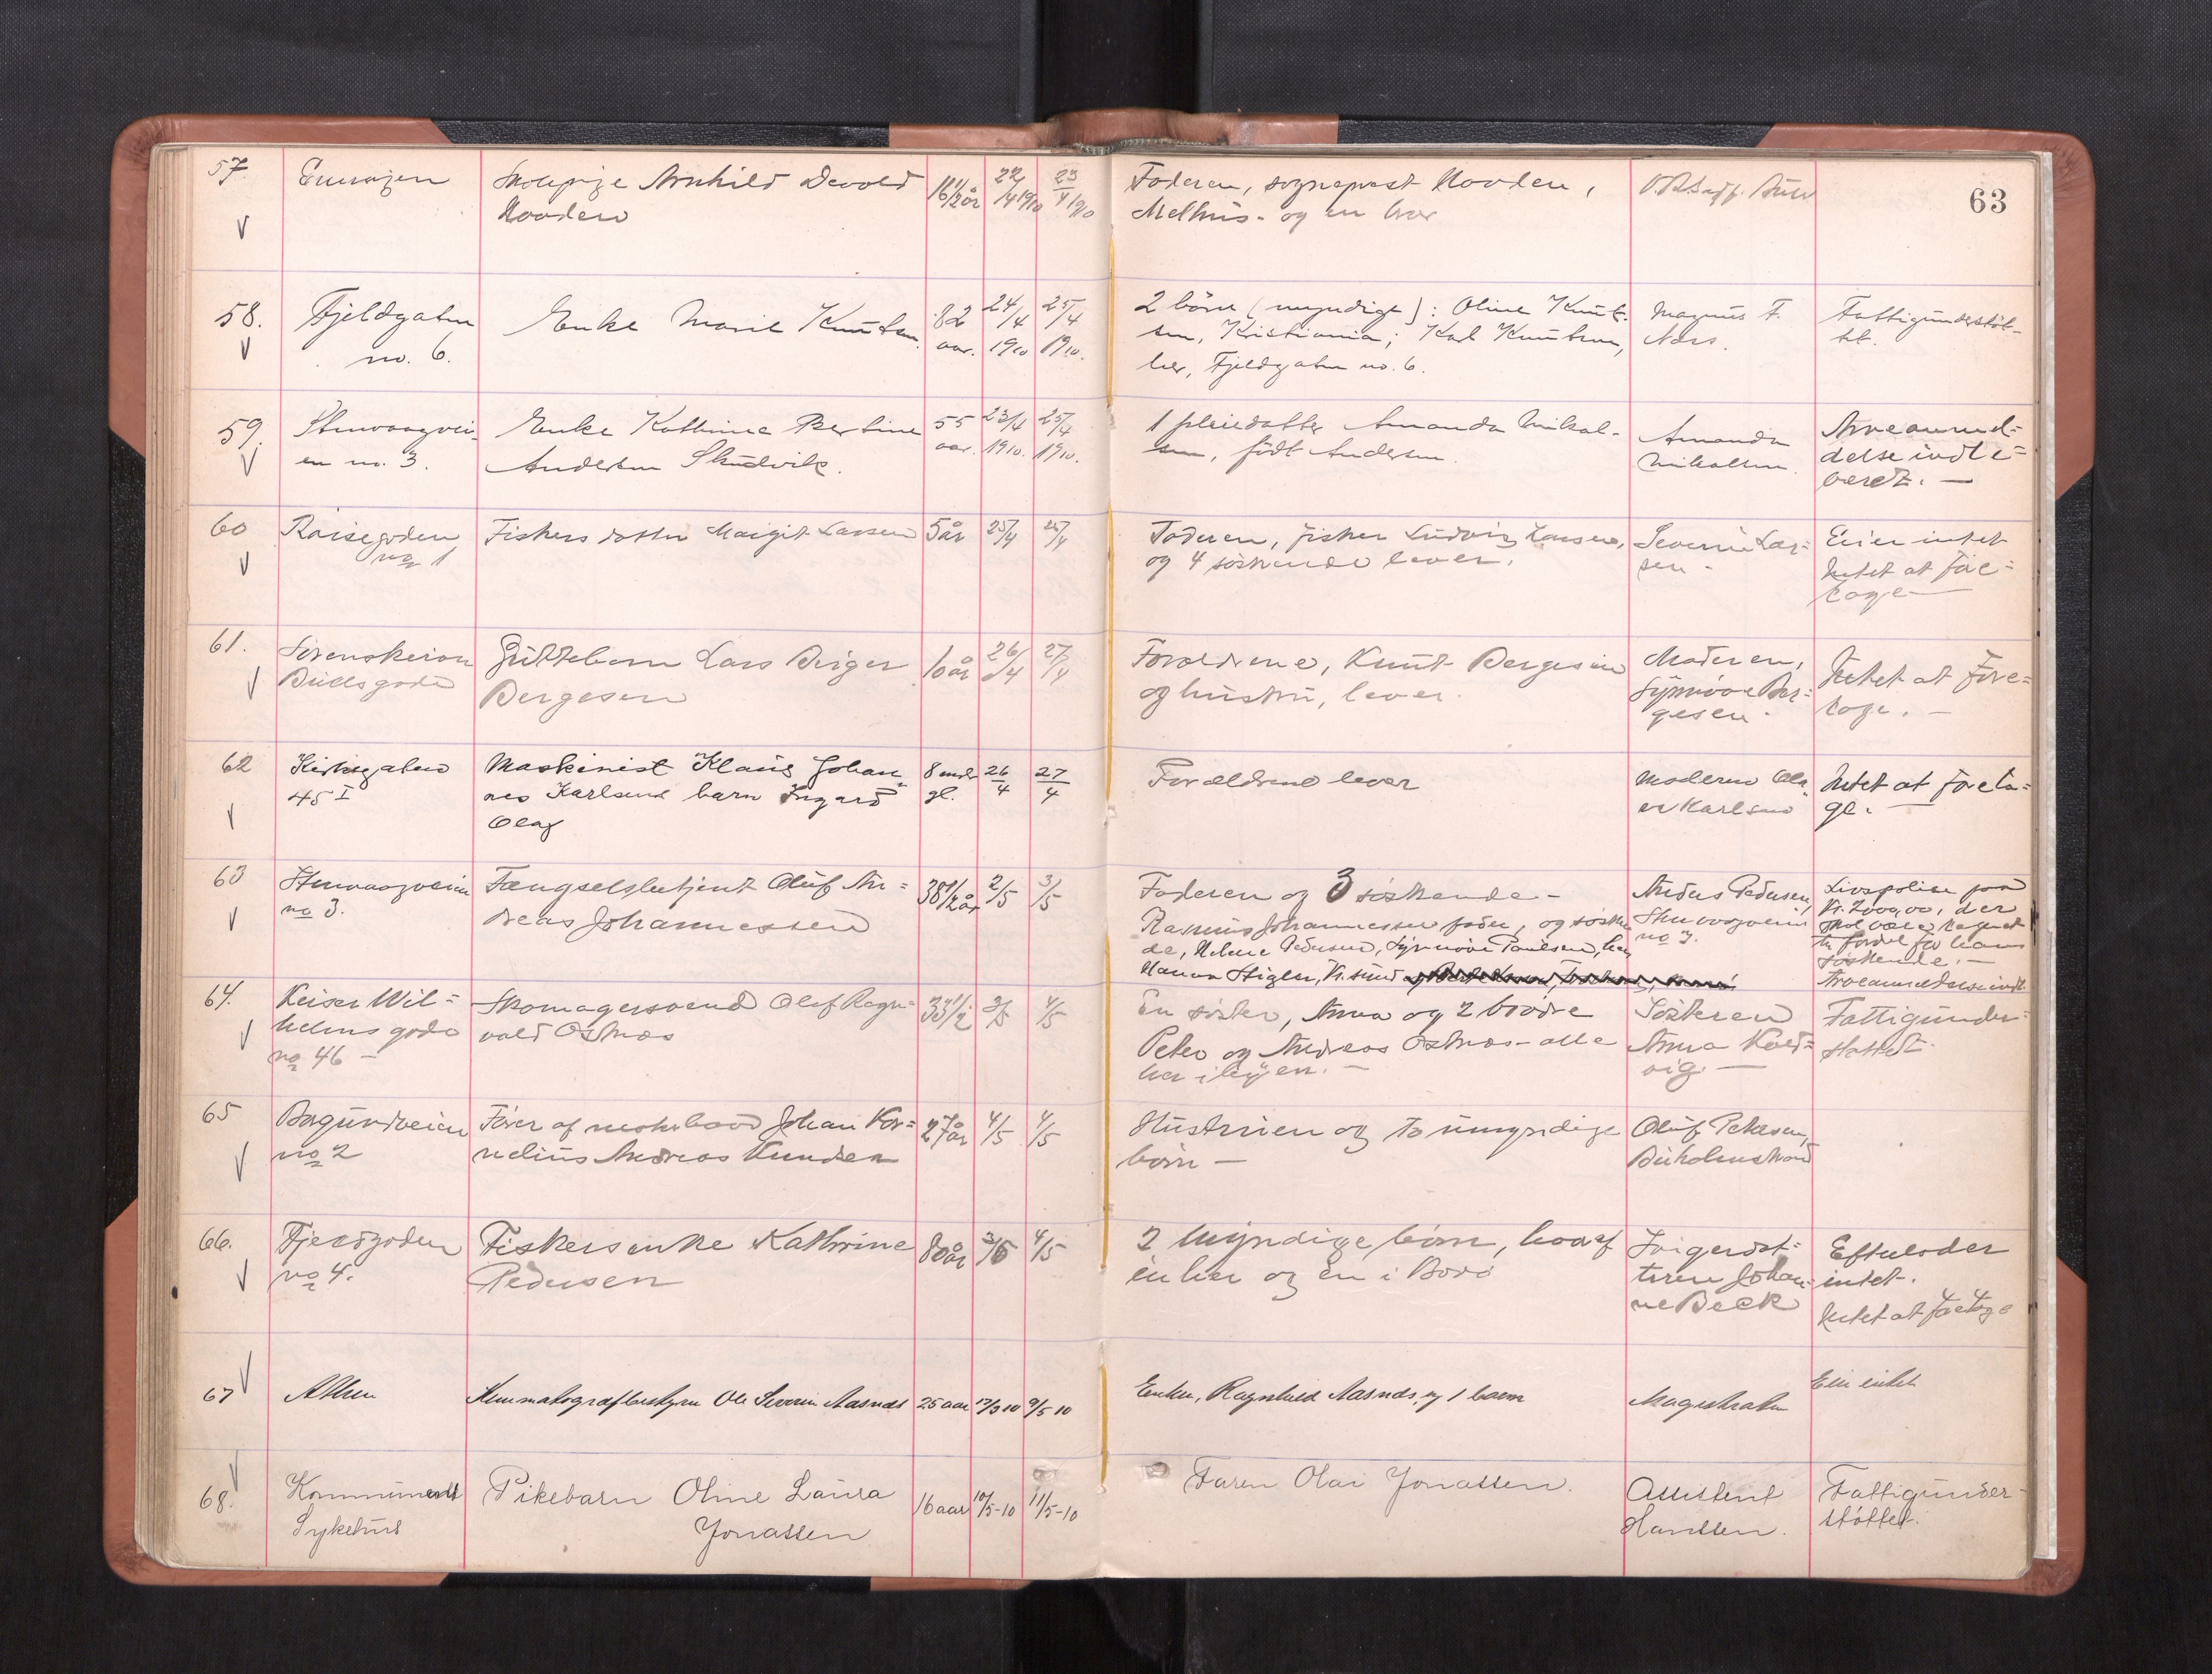 63
57.
Skolepige Arnhild Devold
Hovden
16 1/2 år
22/4 1910
23/4 1910
Faderen, sogneprest Hovden,
Melhus - og en bror
58.
Fjeldgaten
no. 6.
Enke Marie Knutsen
82
aar.
24/4
1910
25/4
1910.
2 börn (myndige): Oline Knut-
sen, Kristiania; Karl Knutsen,
her, Fjeldgaten no. 6.
Magnus F.
Næss.
Fattigunderstöt-
tet.
59.
Stenvaagvei-
en no. 3.
Enke Kathrine Bertine
Andersen Skudvik.
55
aar.
23/4
1910.
25/4
1910.
1 pleiedatter Amanda Mikal-
sen, födt Andersen.
Amanda
Mikalsen.
Arveanmel-
delse indle-
veret. —
60
no 1
Fiskers datter Margit Larsen
5 år
25/4
25/4
Faderen, fisker Ludvig Larsen,
og 4 söskende lever.
Severin Lar-
sen -
Eier intet
Intet at fore-
tage —
61.
Sorenskriver
Bulls gade
Guttebarn Lars Birger
Bergesen
10 år
26/4
27/4
Forældrene, Knut Bergesen
og hustru, lever.
Moderen,
Synnöve Ber-
gesen -
Intet at fore-
tage. —
62
Kirkegaten
45 I
Maskinist Klaus Johan-
nes Karlsens barn Ingard
Olaf
8 mdr
gl.
26/4
27/4
Forældrene lever
Moderen
Karlsen
Intet at foreta-
ge. —
63
Stenvaagveien
no 3.
Fængselsbetjent Oluf An-
dreas Johannessen
38 1/2 år
2/5
3/5
Faderen og 3 söskende -
Rasmus Johannessen fader, og sösken
de, Helene Pedersen, Synnöve Paulsen, her,
Hanna Stigler, Kr.sund
Anders Pedersen,
Stenvaagveien
no 3.
Livspolise paa
Kr. 2000,00, der
skal være
til fordel for hans
söskende. —
64.
Keiser Wil-
helms gade
no 46 -
Skomagersvend Olaf Ragn-
vald Ostnæs
33 1/2
3/5
4/5
En söster, Anna og 2 brödre
Peter og Andreas Ostnæs - alle
her i byen. —
Sösteren
Anna
Fattigunder-
stöttet.
65
Borgundveien
no 2
Förer af motorbaad Johan Kor-
nelius Andreas Knudsen
27 år
4/5
4/5
Hustruen og to umyndige
börn —
Oluf Petersen,
Buholmstrand
66.
Fjeldgaden
no 4.
Fiskersenke Kathrine
Pedersen
80 år
3/5
4/5
2 myndige börn, hvoraf
en her og en i Bodö
Svigerdat-
teren Johan-
ne Beck
Efterlader
intet.
Intet at foretage
67
Kinematografbestyrer Ole Severin Aasnæs
25 aar
9/5 10
Enken, Ragnhild Aasnæs, og 1 barn
Magistraten
Eier intet
68.
Kommunens
Sykehus
Pikebarn Oline Laura
Jonassen
16 aar
10/5-10
11/5-10
Faren Olai Jonassen.
Assistent
Hanssen.
Fattigunder-
støttet.